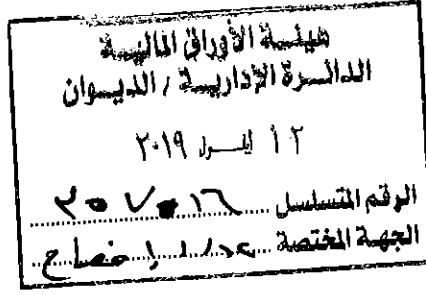 هيئة الأوراق المالية
الدائرة الإدارية / الديوان
١٢ أيلول ٢٠١٩
الرقم المتسلسل
الجهة المختصة